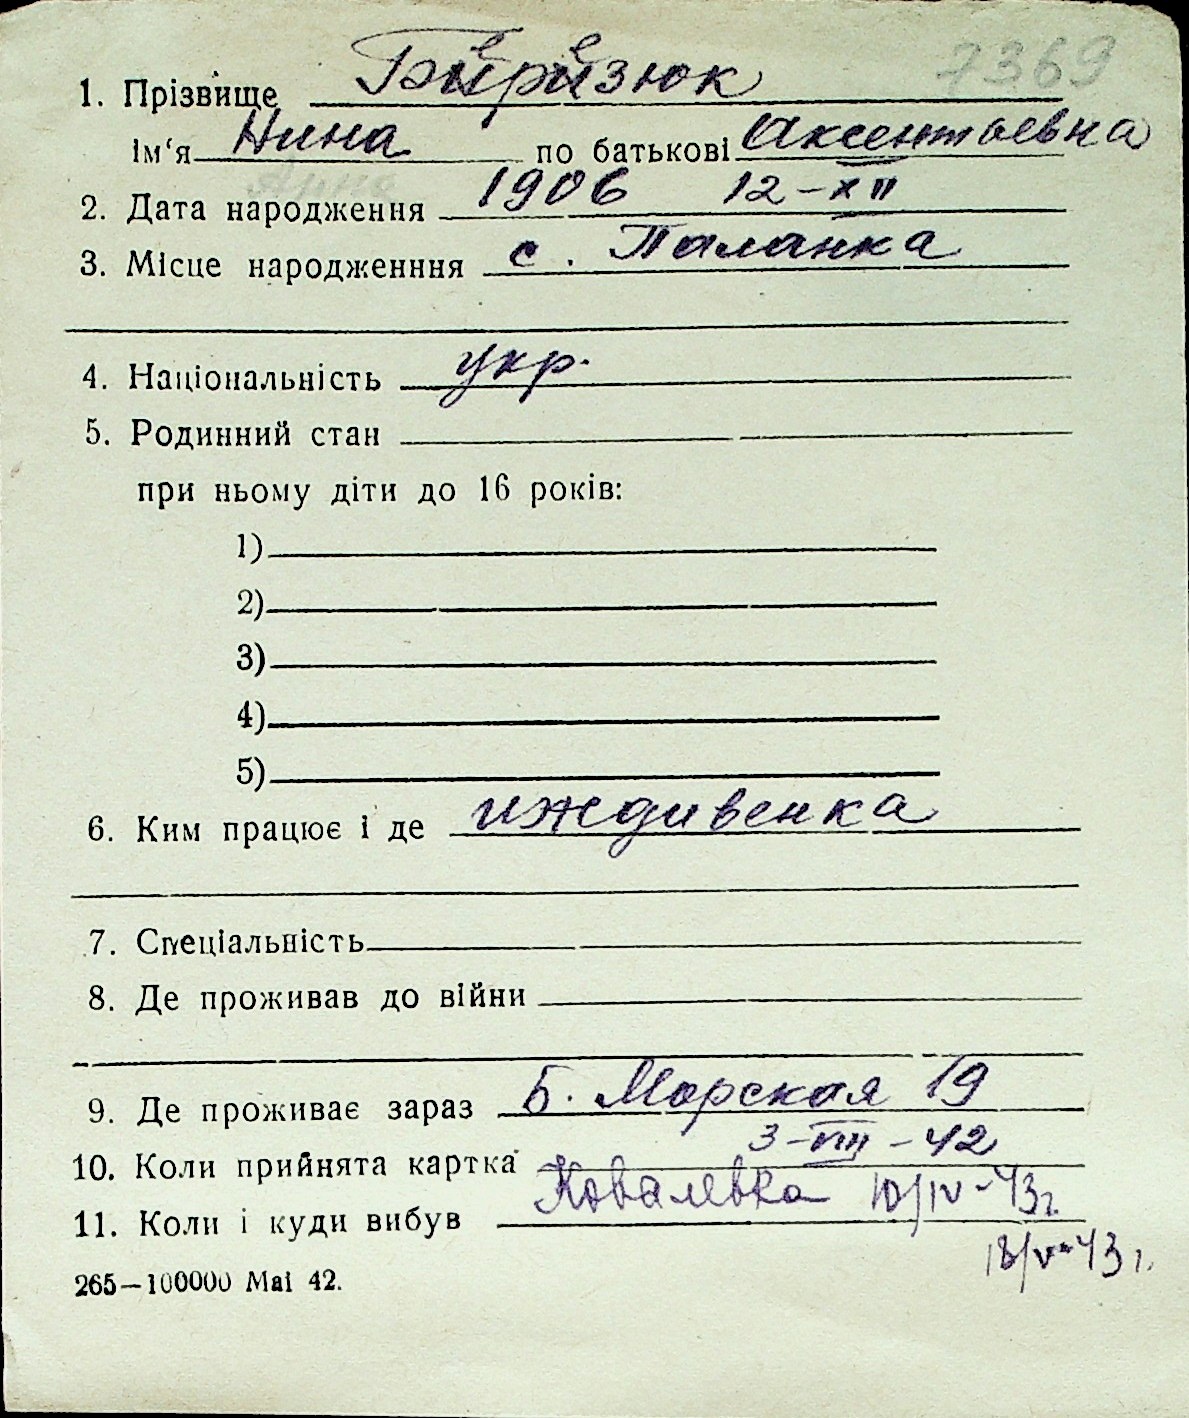 7369
1. Прізвище Биризюк
Ім'я Нина по батькові Аксентьевна
Анна
2. Дата народження 1906 12-XII
3. Місце народженння с. Паланка
4. Національність укр.
5. Родинний стан
при ньому діти до 16 років:
1)
2)
3)
4)
5)
6. Ким працює і де иждивенка
7. Спеціальність
8. Де проживав до війни
9. Де проживає зараз Б. Морская 19
10. Коли прийнята картка 3-VIII-42
11. Коли і куди вибув Ковалевка 10/IV-43г.
18/V-43г.
265—100000 Mai 42.